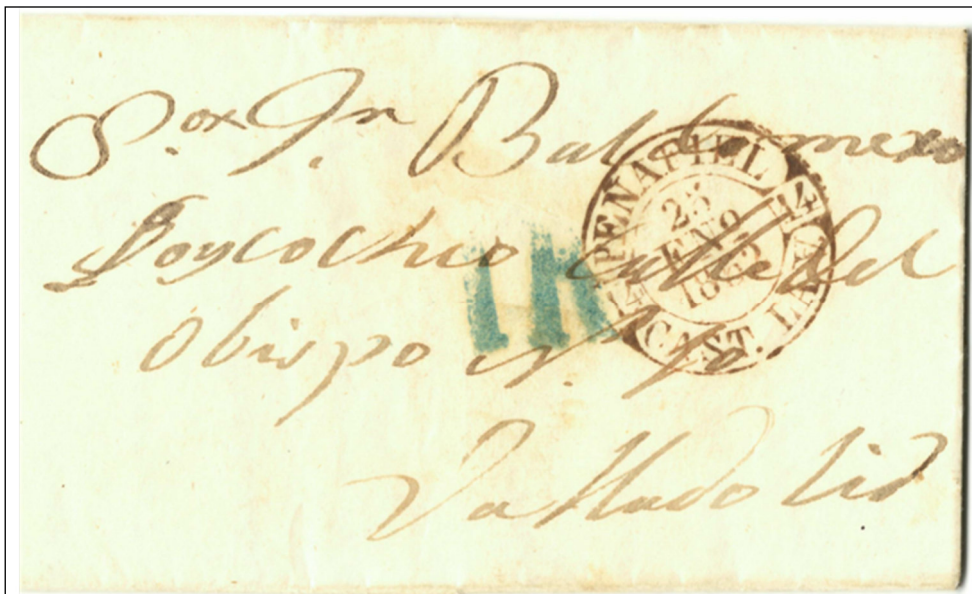 S.or Dn. Baldomero
Goycochea calle del
Obispo N.
Valladolid
PEÑAFIEL
25
ENO
1852
14
14
CAST. LA V.
1R